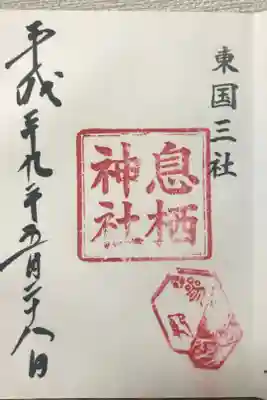 東国三社
息栖
神社
平成廿九年五月二十八日